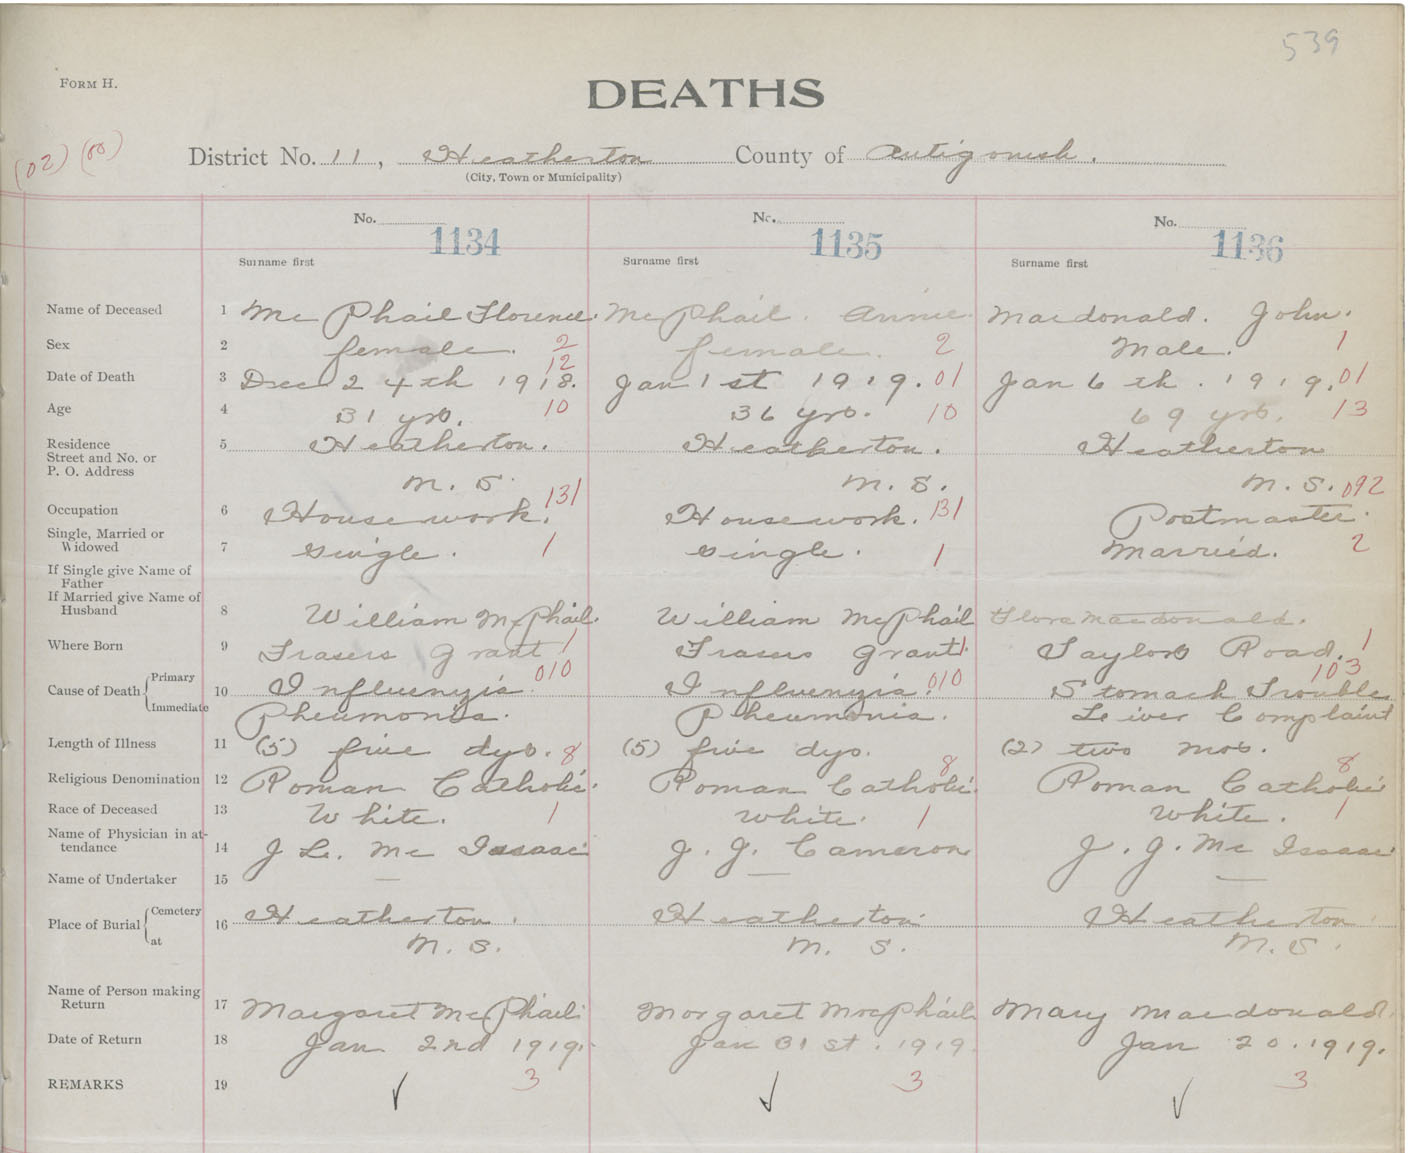 539
FORM H.
DEATHS
(02) (00)
District No. 11, Heatherton County of Antigonish.
(City, Town or Municipality)
No. No. No.
1134 1135 1136
Surname first Surname first Surname first
Name of Deceased 1 Mc Phail Florence. McPhail. Annie. Macdonald. John.
Sex 2 female. 2 female. 2 Male. 1
12
Date of Death 3 Dec 24th 1918. Jan 1st 1919. 01 Jan 6th. 1919. 01
Age 4 31 yrs. 10 36 yrs. 10 69 yrs. 13
Residence 5 Heatherton. Heatherton. Heatherton
Street and No. or
P. O. Address
N. S. N. S. N. S. 092
Occupation 6 Housework. 131 Housework. 131 Postmaster.
Single, Married or
Widowed 7 single. 1 single. 1 Married. 2
If Single give Name of
Father
If Married give Name of
Husband 8 William McPhail. William McPhail Flora Macdonald.
Where Born 9 Frasers Grant 1 Frasers Grant 1 Taylors Road. 1
010 010 103
Cause of Death Primary 10 Influenzia Influenzia. Stomach Trouble
Immediate Pneumonia. Pneumonia. Leiver Complaint
Length of Illness 11 (5) five dys. 8 (5) five dys. 8 (2) two mos. 8
Religious Denomination 12 Roman Catholic. Roman Catholic. Roman Catholic
Race of Deceased 13 White. 1 White. 1 White. 1
Name of Physician in at-
tendance 14 J L. Mc Isaac J. J. Cameron J. J. Mc Isaac
Name of Undertaker 15 — — —
Place of Burial Cemetery 16 Heatherton. Heatherton. Heatherton.
at N. S. N. S. N. S.
Name of Person making
Return 17 Margaret McPhail Margaret MacPhail Mary Macdonald.
Date of Return 18 Jan 2nd 1919. Jan 31st. 1919 Jan 20. 1919.
REMARKS 19 3 3 3